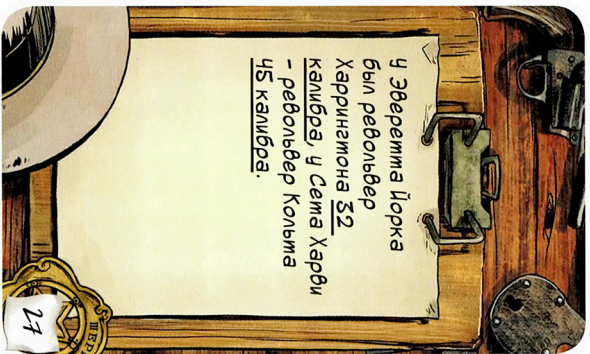 У Эверетта Йорка
был револьвер
Харрингтона 32
калибра, у Сета Харви
- револьвер Кольта
45 калибра.
ШЕР
27